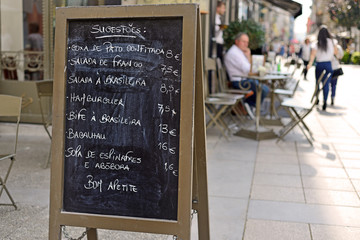 SUGESTÕES:
· COXA DE PATO CONFITADA 8€
· SALADA DE FRANGO
· SALADA À BRASILEIRA
· HAMBURGUER
· BIFE À BRASILEIRA 13€
· BACALHAU 16€
· SOPA DE ESPINAFRES
E ABÓBORA
BOM APETITE